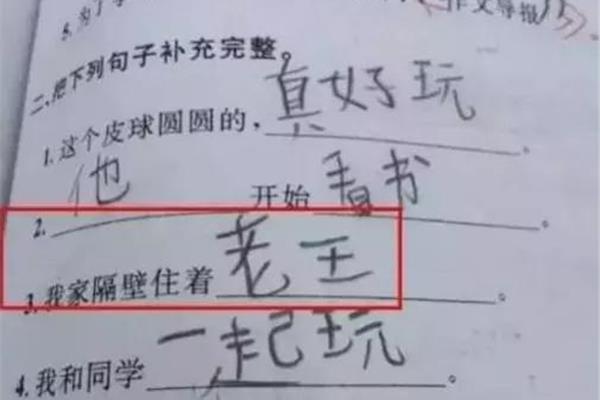 作文导报
二、把下列句子补充完整。
1.这个皮球圆圆的，真好玩。
2.他开始看书。
3.我家隔壁住着老王。
4.我和同学一起玩。